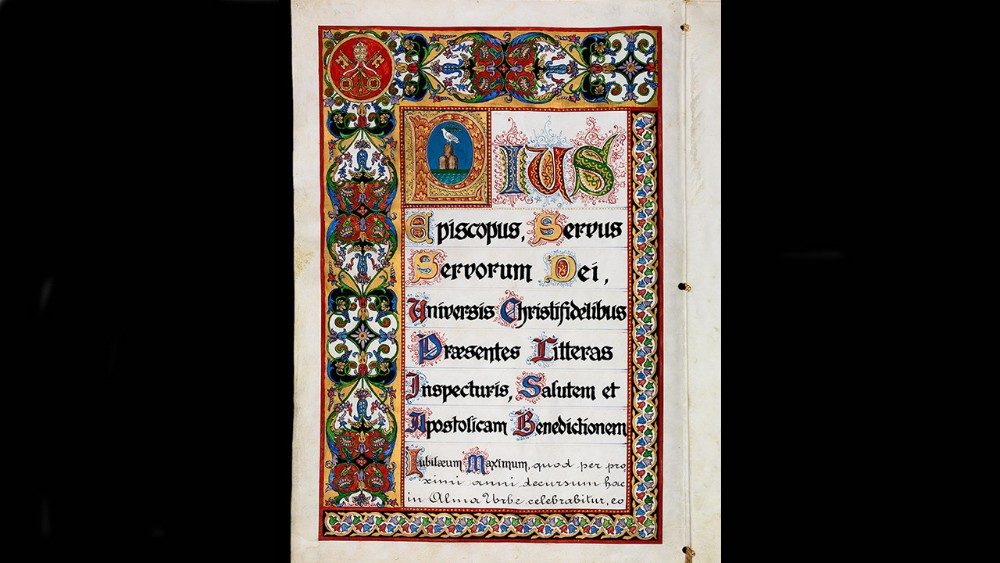 Pius
Episcopus, Servus
Servorum Dei,
Universis Christifidelibus
Præsentes Litteras
Inspecturis, Salutem et
Apostolicam Benedictionem
Iubilæum Maximum, quod per pro
ximi anni decursum hac
in Alma Urbe celebrabitur, eo